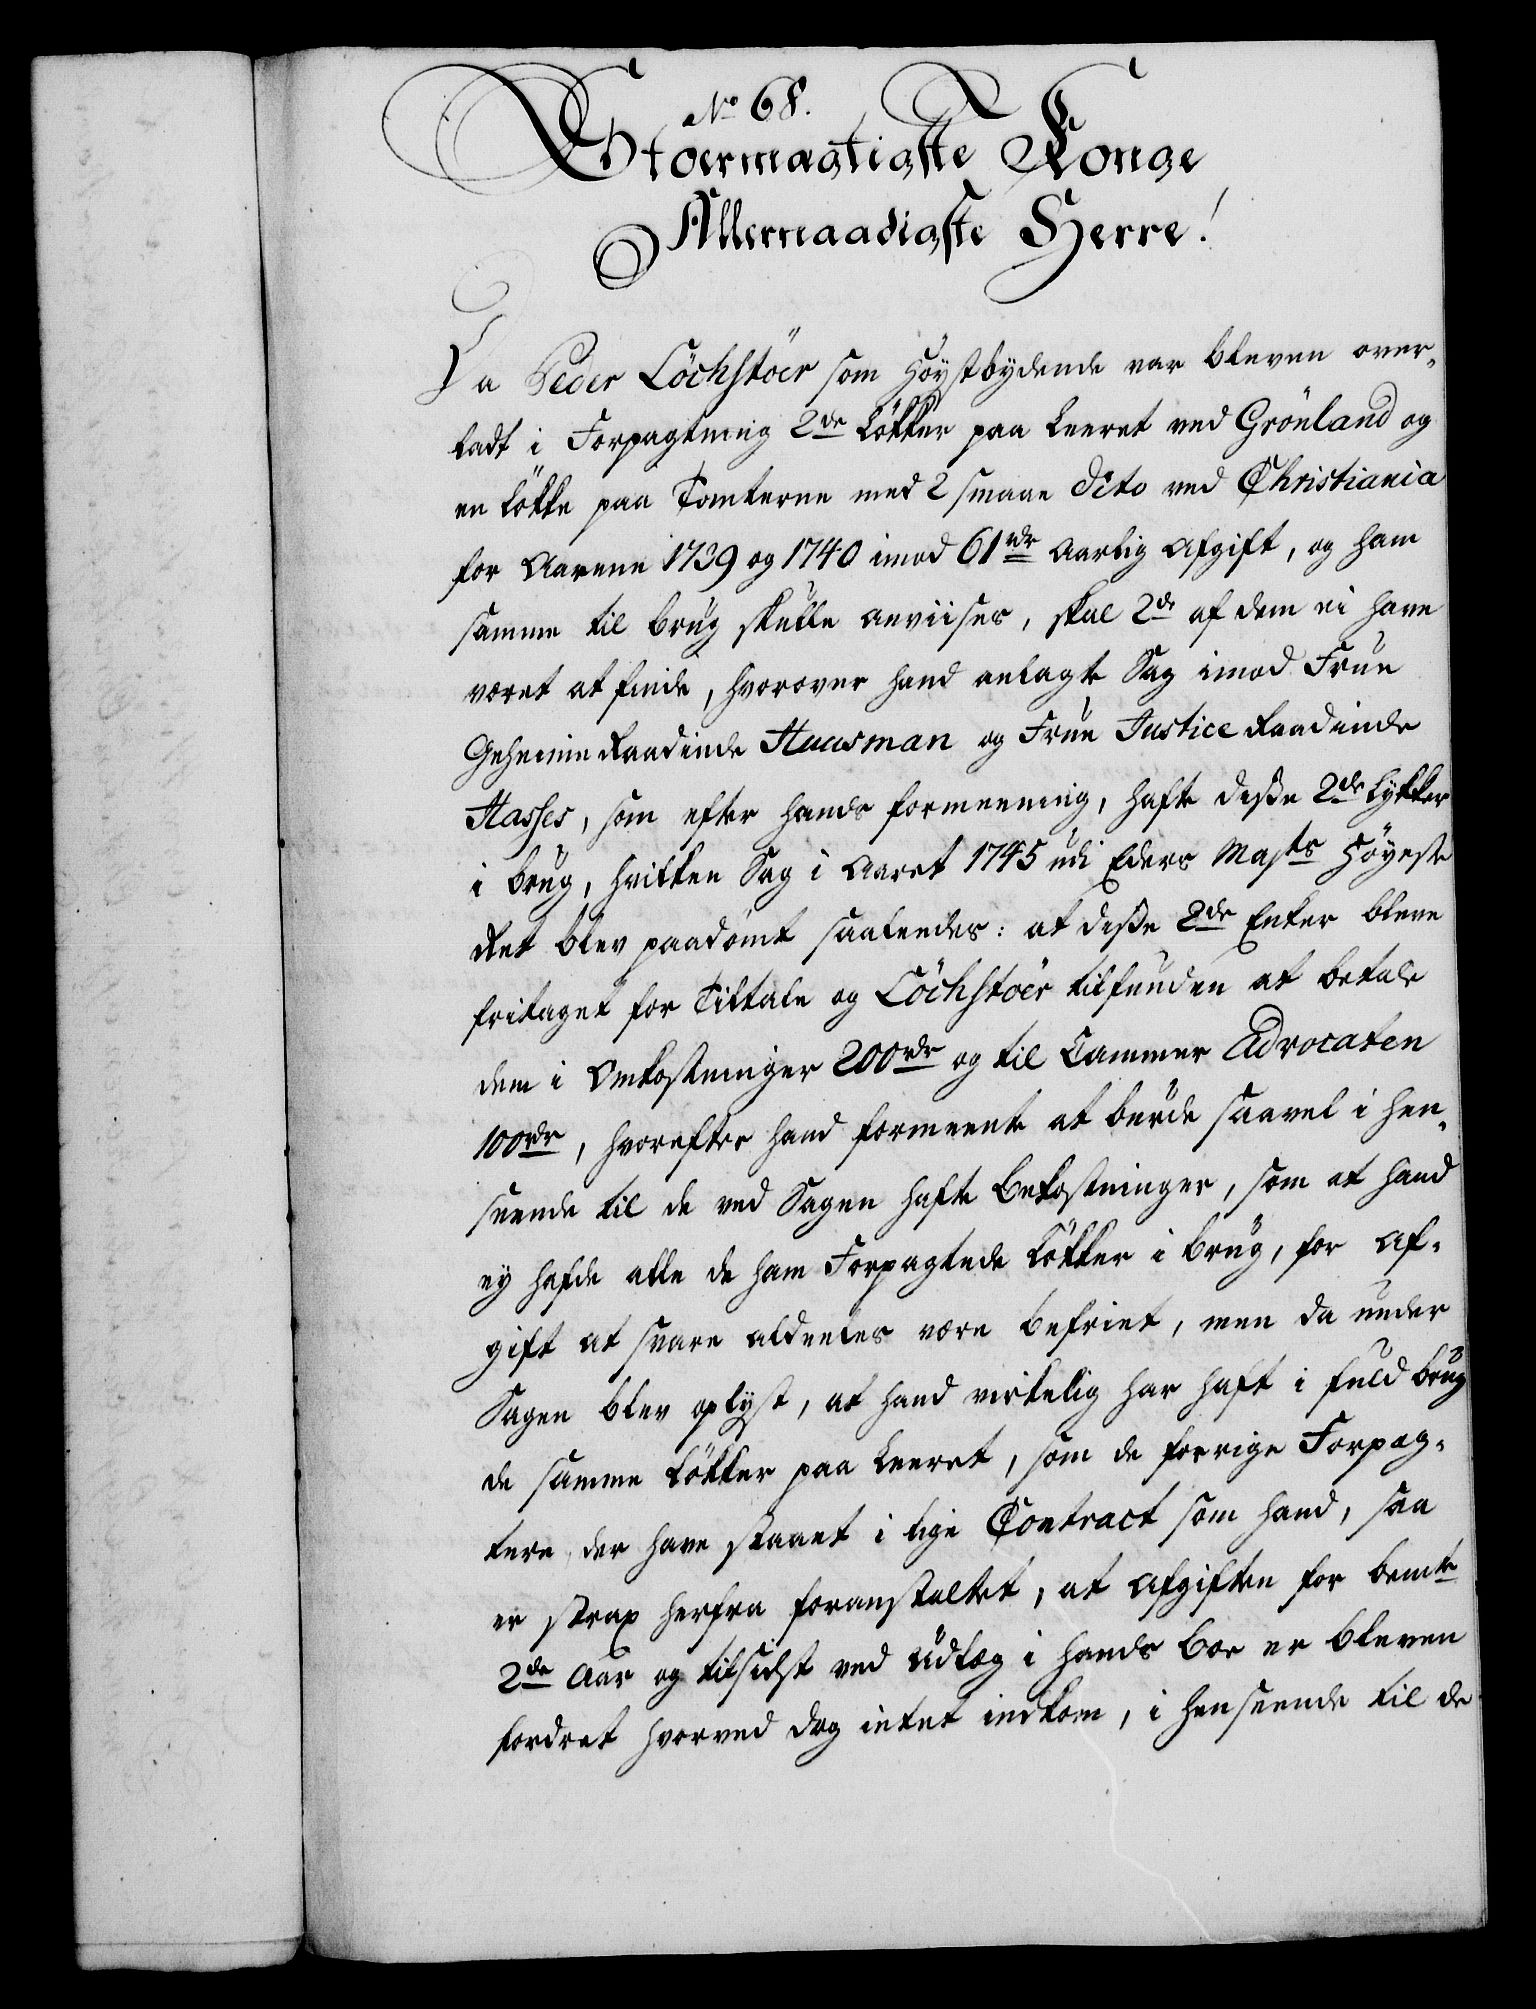 No 68.
Stoermægtigste Konge
Allernaadigste Herre!
Da Peder Löchstöer som Høystbydende var bleven over-
ladt i Forpagtning 2de Løkker paa Leeret ved Grönland og
en Løkke paa Tomterne med 2 smaae dito ved Christiania
for Aarene 1739 og 1740 imod 61 rdr Aarlig Afgift, og ham
samme til brug skulle anviises, skal 2de af dem ei have
været at finde, hvorover hand anlagte Sag imod Frue
Geheime Raadinde Hausman og Frue Justice Raadinde
Hasses, som efter hands formeening, hafte diße 2de Lykker
i brug, hvilken Sag i Aaret 1745 udi Eders Majts Høyeste
Ret blev paadømt saaledes: at diße 2de Enker bleve
fritaget for Tiltale og Löchstöer tilfunden at betale
dem i Omkostninger 200 rdr og til Cammer Advocaten
100 rdr, hvorefter hand formeente at burde saavel i hen-
seende til de ved Sagen hafte bekostninger, som at hand
ey hafde alle de ham Forpagtede Løkker i brug, for Af-
gift at svare aldeeles være befriet, men da under
Sagen blev oplyst, at hand virkelig har haft i fuld brug
de samme Løkker paa Leeret, som de forrige Forpag-
tere, der have staaet i lige Contract som hand, saa
er strax herfra foranstaltet, at Afgiften for bemte
2de Aar og tilsidst ved Udlæg i hands boe er bleven
fordret hvorved dog intet indkom, i henseende til de